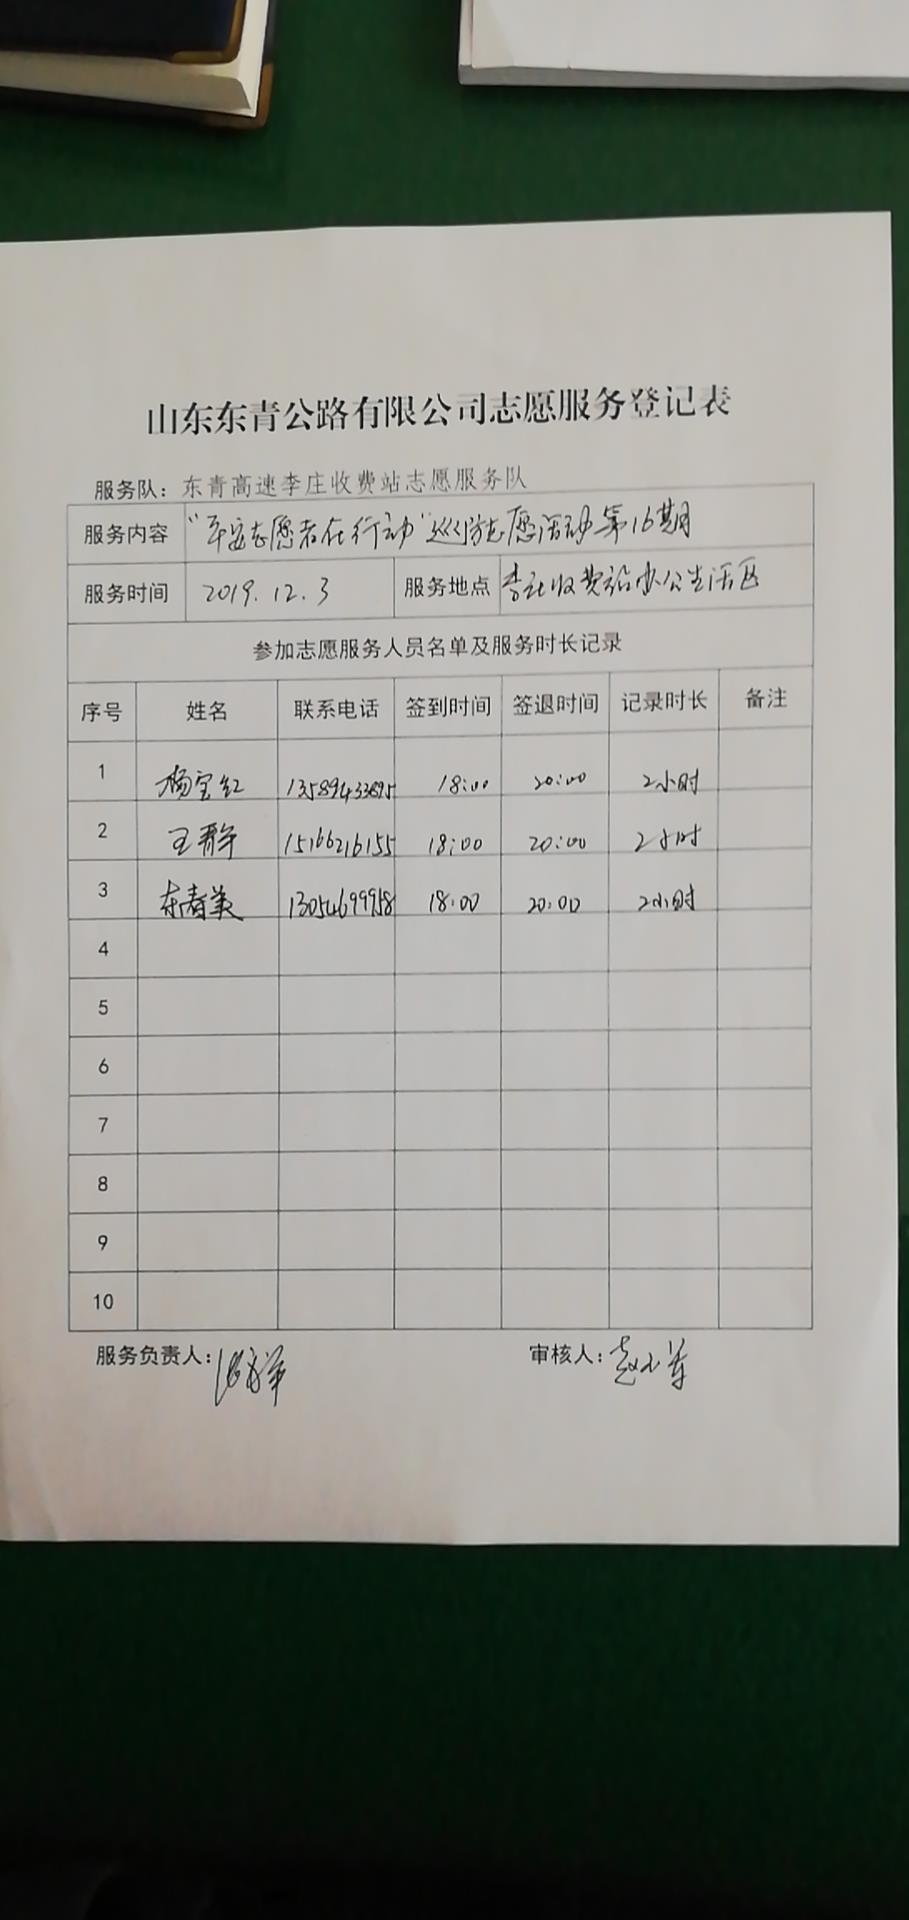 山东东青公路有限公司志愿服务登记表
服务队：东青高速李庄收费站志愿服务队
服务内容 "平安志愿者在行动"巡游志愿活动第16期
服务时间 2019.12.3 服务地点 李庄收费站办公生活区
参加志愿服务人员名单及服务时长记录
序号 姓名 联系电话 签到时间 签退时间 记录时长 备注
1 杨宝红 13589433895 18:00 20:00 2小时
2 王静 15166216155 18:00 20:00 2小时
3 春美 13054699958 18:00 20:00 2小时
4
5
6
7
8
9
10
服务负责人： 审核人：赵小军